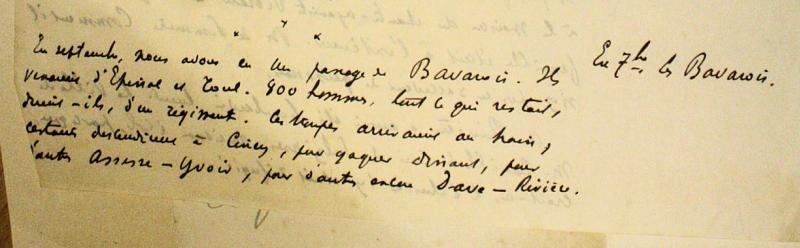 * * *
En septembre, nous avons eu un passage de Bavarois. Ils
venaient d'Epinal et Toul. 900 hommes, tout ce qui restait,
disait-ils, d'un régiment. Ces troupes arrivaient au train,
certains descendirent à Ciney, pour gagner Dinant, pour
d'autres Assesse-Yvoir, pour d'autres encore Dave-Rivière.
En 7bre les Bavarois.